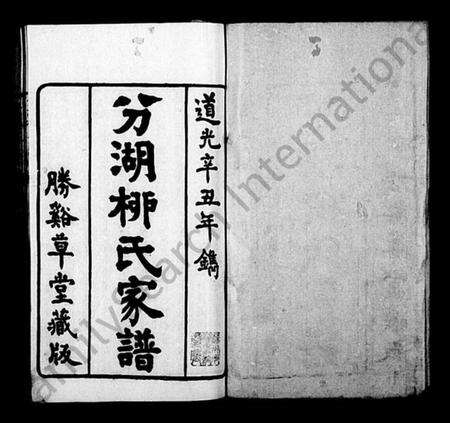 道光辛丑年鐫
分湖柳氏家譜
勝谿草堂藏版
FamilySearch International